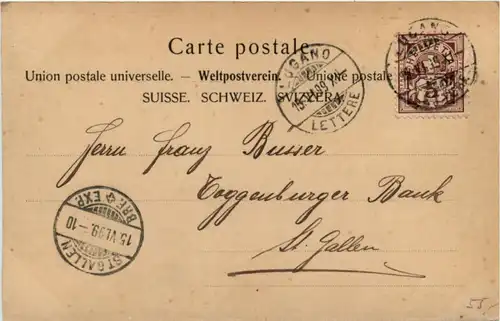 Carte postale.
Union postale universelle. — Weltpostverein. — Unione postale
SUISSE. SCHWEIZ. SVIZZERA.
LUGANO
15.VI.99
LETTERE
LUGANO
Herrn Franz Busser
Toggenburger Bank
St. Gallen
BRF. EXP.
15.VI.99.–10
ST. GALLEN
55.-